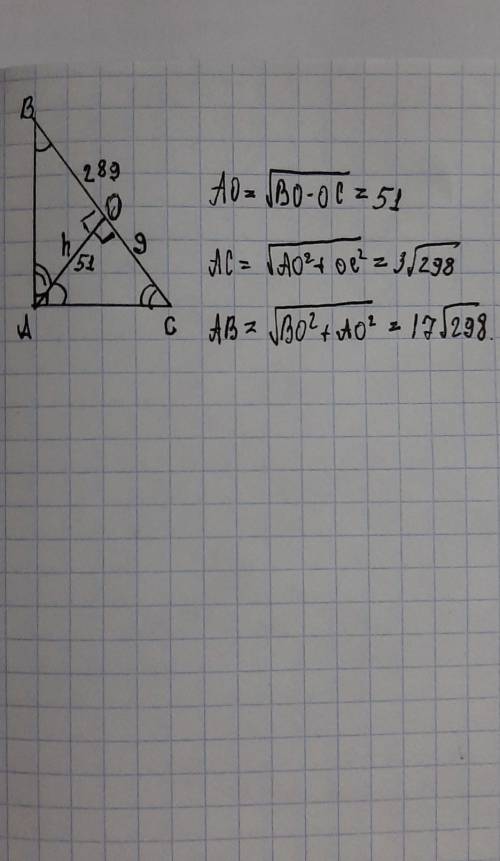 B
289
O
h
51
9
A
C
AO = √BO·OC = 51
AC = √AO²+OC² = 3√298
AB = √BO²+AO² = 17√298.